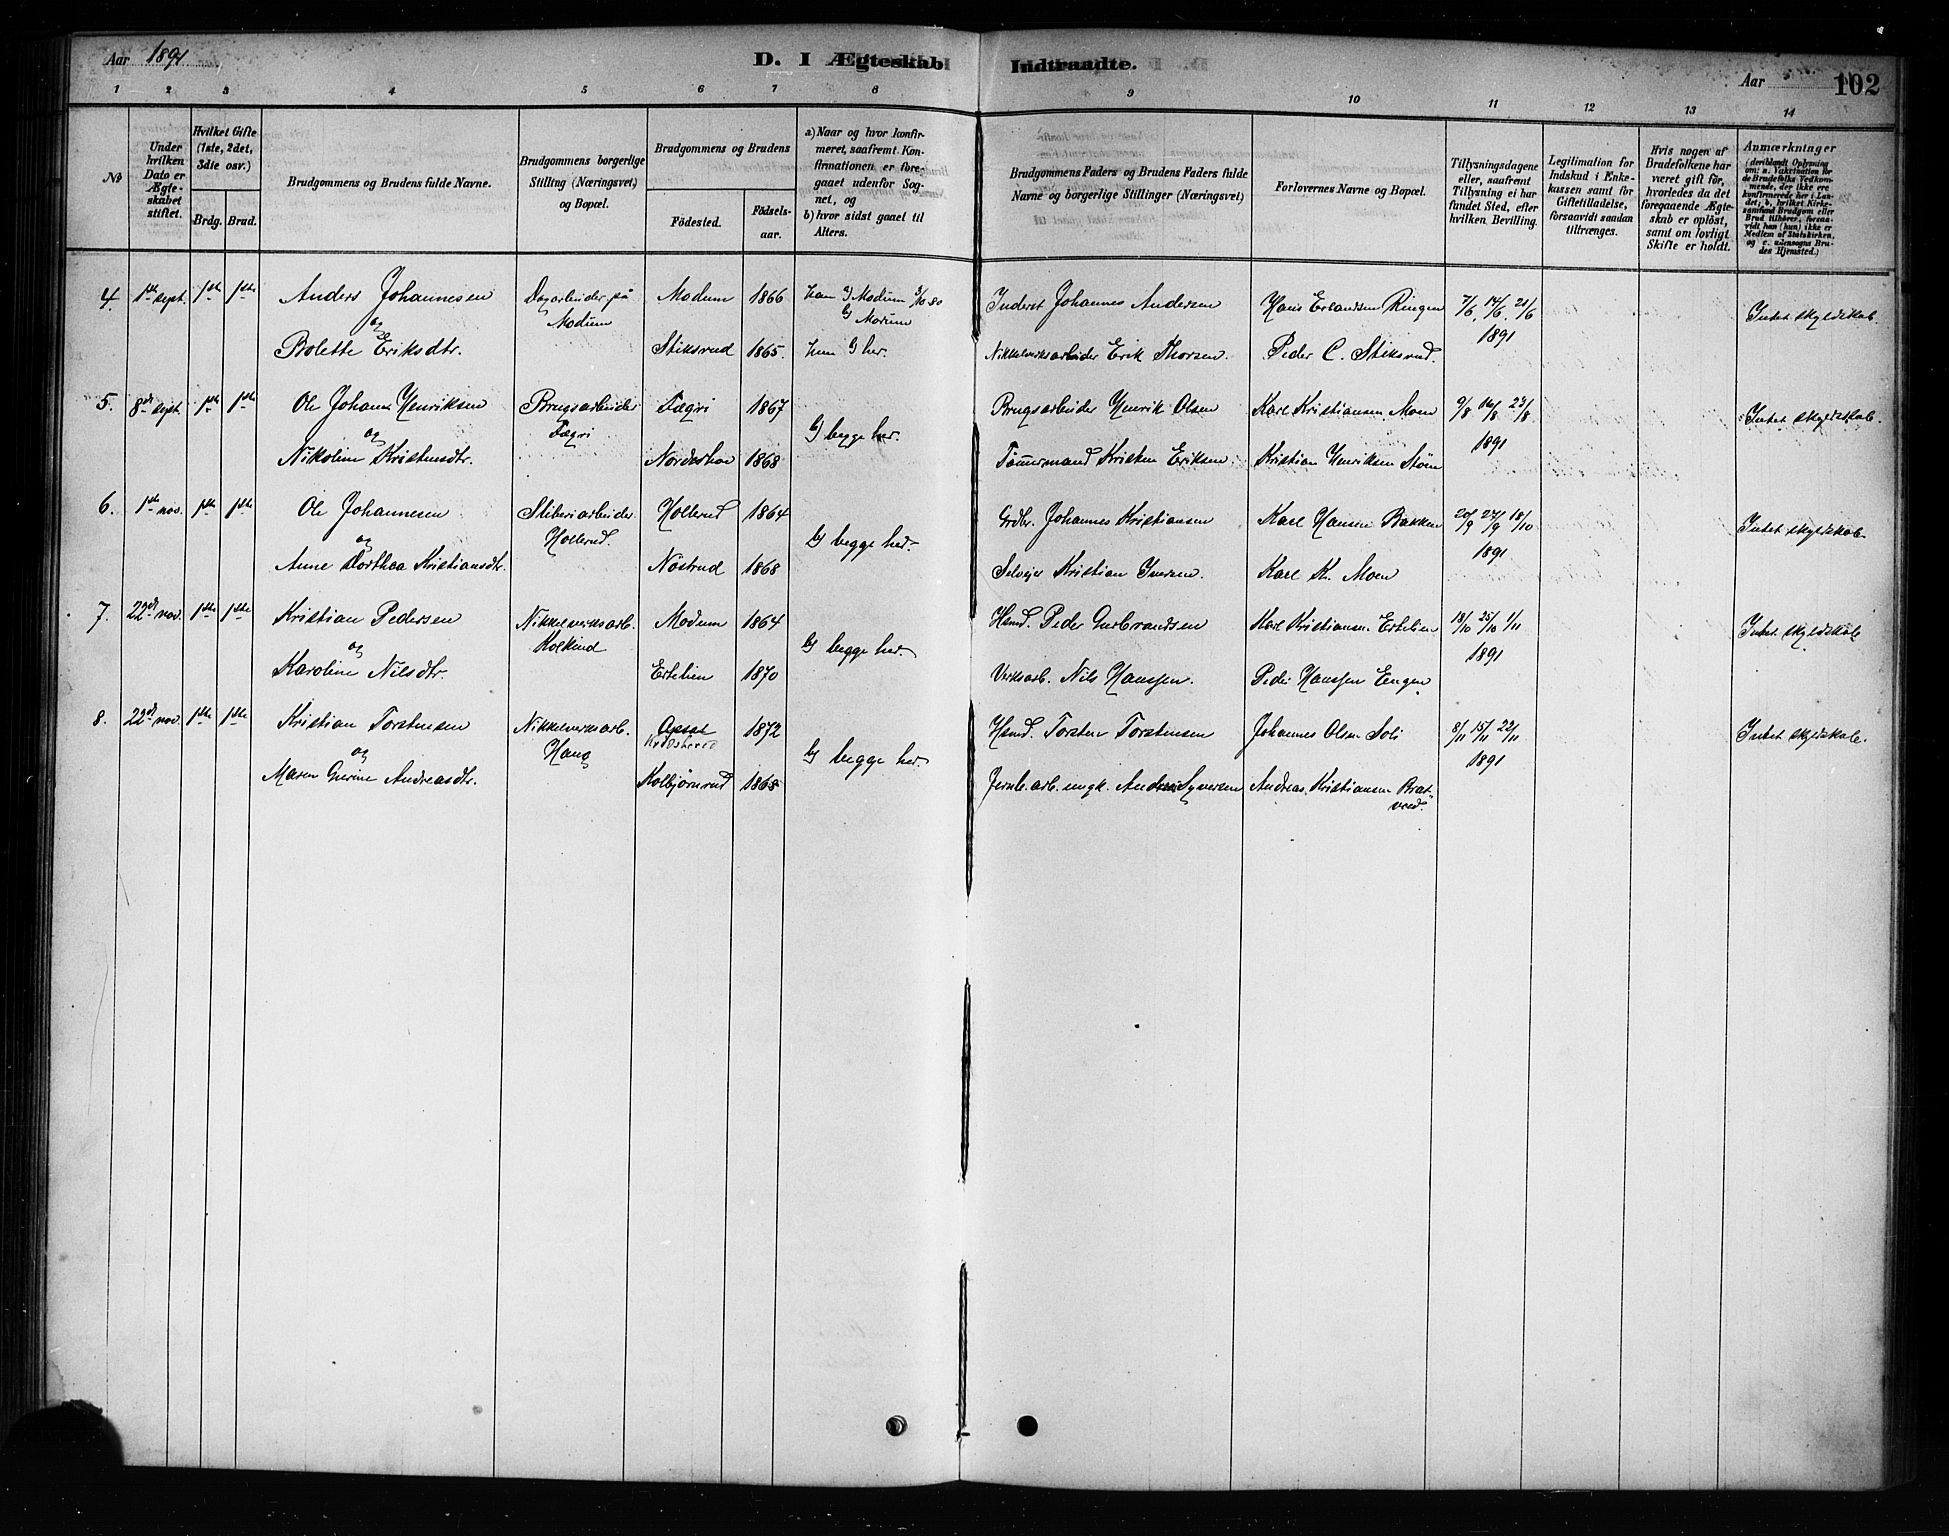 Aar 1891
D. I Ægteskab Indtraadte.
Aar 102
1 2 3 4 5 6 7 8 9 10 11 12 13 14
No
Under hvilken Dato er Ægteskabet stiftet.
Hvilket Gifte (1ste, 2det, 3die osv.)
Brdg. Brud.
Brudgommens og Brudens fulde Navne.
Brudgommens borgerlige Stilling (Næringsvei) og Bopæl.
Brudgommens og Brudens
Födested.
Födsels-aar.
a) Naar og hvor konfirmeret, saafremt Konfirmationen er foregaaet udenfor Sognet, og
b) hvor sidst gaaet til Alters.
Brudgommens Faders og Brudens Faders fulde Navne og borgerlige Stillinger (Næringsvei)
Forlovernes Navne og Bopæl.
Tillysningsdagene eller, saafremt Tillysning ei har fundet Sted, efter hvilken Bevilling.
Legitimation for Indskud i Enkekassen samt for Giftetilladelse, forsaavidt saadan tiltrænges.
Hvis nogen af Brudefolkene har været gift för, hvorledes da det foregaaende Ægteskab er oplöst, samt om lovligt Skifte er holdt.
Anmærkninger
(deriblandt Oplysning om: a. Vakcination for de Brudefolks Vedkommende, der ikke ere konfirmerede her i Landet; b. hvilket Kirkesamfund Brudgom eller Brud tilhörer, forsaavidt han (hun) ikke er Medlem af Statskirken, og c. udensogns Brudes Hjemsted.)
4. 1ste sept. 1ste 1ste Anders Johannesen Dagarbeider på Modum Modum 1866 ham a) Modum 3/10 80 b) Modum Inderst Johannes Andersen Hans Erlandsen Ringen 7/6, 14/6, 21/6 1891 Intet skyldskab.
og
Bolette Eriksdtr. Stiksrud 1865. hun b) her. Nikkelverksarbeider Erik Thorsen. Peder C. Stiksrud.
5. 8de sept. 1ste 1ste Ole Johan Henriksen Brugsarbeider Fægri Fægri 1867 b) begge her. Brugsarbeider Henrik Olsen Karl Kristiansen Moen 9/8 16/8 23/8 1891 Intet skyldskab.
og
Nikoline Kristensdtr. Norderhov 1868 Tömmermand Kristen Eriksen. Kristian Henriksen Moen
6. 1ste nov. 1ste 1ste Ole Johannesen Sliberiarbeider Hollerud. Hollerud 1864 b) begge her. Grdbr. Johannes Kristiansen Karl Hansen Bakken 20/9 27/9 18/10 1891 Intet skyldskab.
og
Anne Dorthea Kristiansdtr. Nöstrud 1868 Selveier Kristian Iversen. Karl K. Moen
7. 22de nov. 1ste 1ste Kristian Pedersen Nikkelverksarb. Modum 1864 b) begge her. Hsmd. Peder Gurbrandsen Karl Kristiansen Ertelien 18/10 25/10 1/11 1891 Intet skyldskab
og
Karoline Nilsdtr. Ertelien 1870 Verksarb. Nils Hanssen. Peder Hanssen Engen
8. 22de nov. 1ste 1ste Kristian Torstensen Nikkelverksarb. Haug Krödsherred 1872 b) begge her. Hsmd. Torsten Torstensen Johannes Olsen Soli 8/11 15/11 22/11 1891 Intet skyldskab.
og
Maren Gurine Andreasdtr. Kolbjørnrud 1868 Jernb. arb. ungk. Andreas Syversen Andreas Kristiansen Bratvred.